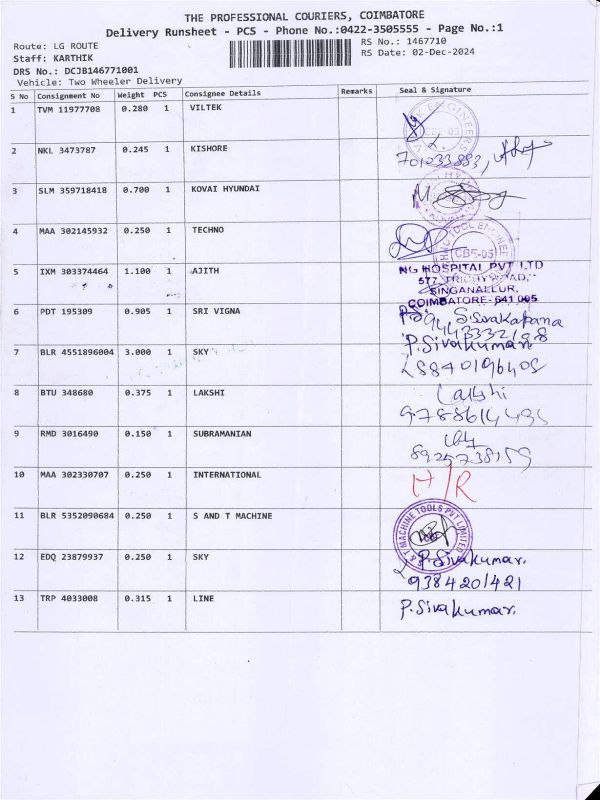 THE PROFESSIONAL COURIERS, COIMBATORE
Delivery Runsheet - PCS - Phone No.:0422-3505555 - Page No.:1
Route: LG ROUTE
RS No.: 1467710
Staff: KARTHIK
RS Date: 02-Dec-2024
DRS No.: DCJB146771001
Vehicle: Two Wheeler Delivery
S No Consignment No Weight PCS Consignee Details Remarks Seal & Signature
1 TVM 11977708 0.280 1 VILTEK
2 NKL 3473787 0.245 1 KISHORE
3 SLM 359718418 0.700 1 KOVAI HYUNDAI
4 MAA 302145932 0.250 1 TECHNO
CBE-05
5 IXM 303374464 1.100 1 AJITH
NG HOSPITAL PVT LTD
577, TRICHY ROAD,
SINGANALLUR,
COIMBATORE-641 005
6 PDT 195309 0.905 1 SRI VIGNA
7 BLR 4551896004 3.000 1 SKY P.Sivakumar
8 BTU 348680 0.375 1 LAKSHI Lakshi
9 RMD 3016490 0.150 1 SUBRAMANIAN
10 MAA 302330707 0.250 1 INTERNATIONAL H/R
11 BLR 5352090684 0.250 1 S AND T MACHINE
S & T MACHINE TOOLS PVT LIMITED
12 EDQ 23879937 0.250 1 SKY P.Sivakumar.
9384201421
13 TRP 4033008 0.315 1 LINE P.Sivakumar.